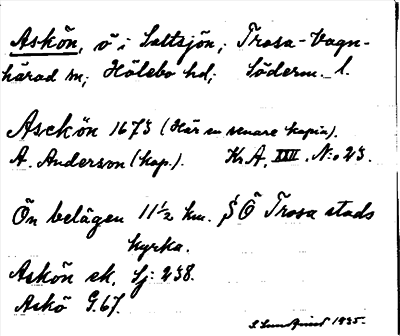 Askön, ö i Saltsjön; Trosa-Vagn-
härad sn; Hölebo hd; Söderm. l.
Asckön 1673 (Här en senare kopia).
A. Anderson (kop.). Kr A. XXII. N:o 23.
Ön belägen 11½ km. SÖ Trosa stads
kyrka.
Askön ek. Sj: 238.
Askö G.67.
1935.